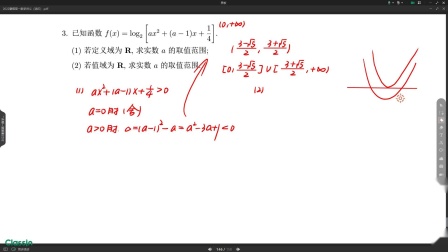 3. 已知函数 f(x) = log₂[ax² + (a−1)x + 1/4].
(1) 若定义域为 R, 求实数 a 的取值范围;
(2) 若值域为 R, 求实数 a 的取值范围.
(0, +∞)
(3−√5/2, 3+√5/2)
[0, 3−√5/2] ∪ [3+√5/2, +∞)
(1) ax²+(a−1)x+1/4>0
(2)
a=0时 (舍)
a>0时 Δ=(a−1)²−a=a²−3a+1<0
Classin